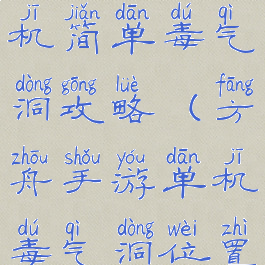 jī jiǎn dān dú qì
机简单毒气
dòng gōng lüè fāng
洞攻略（方
zhōu shǒu yóu dān jī
舟手游单机
dú qì dòng wèi zhì
毒气洞位置